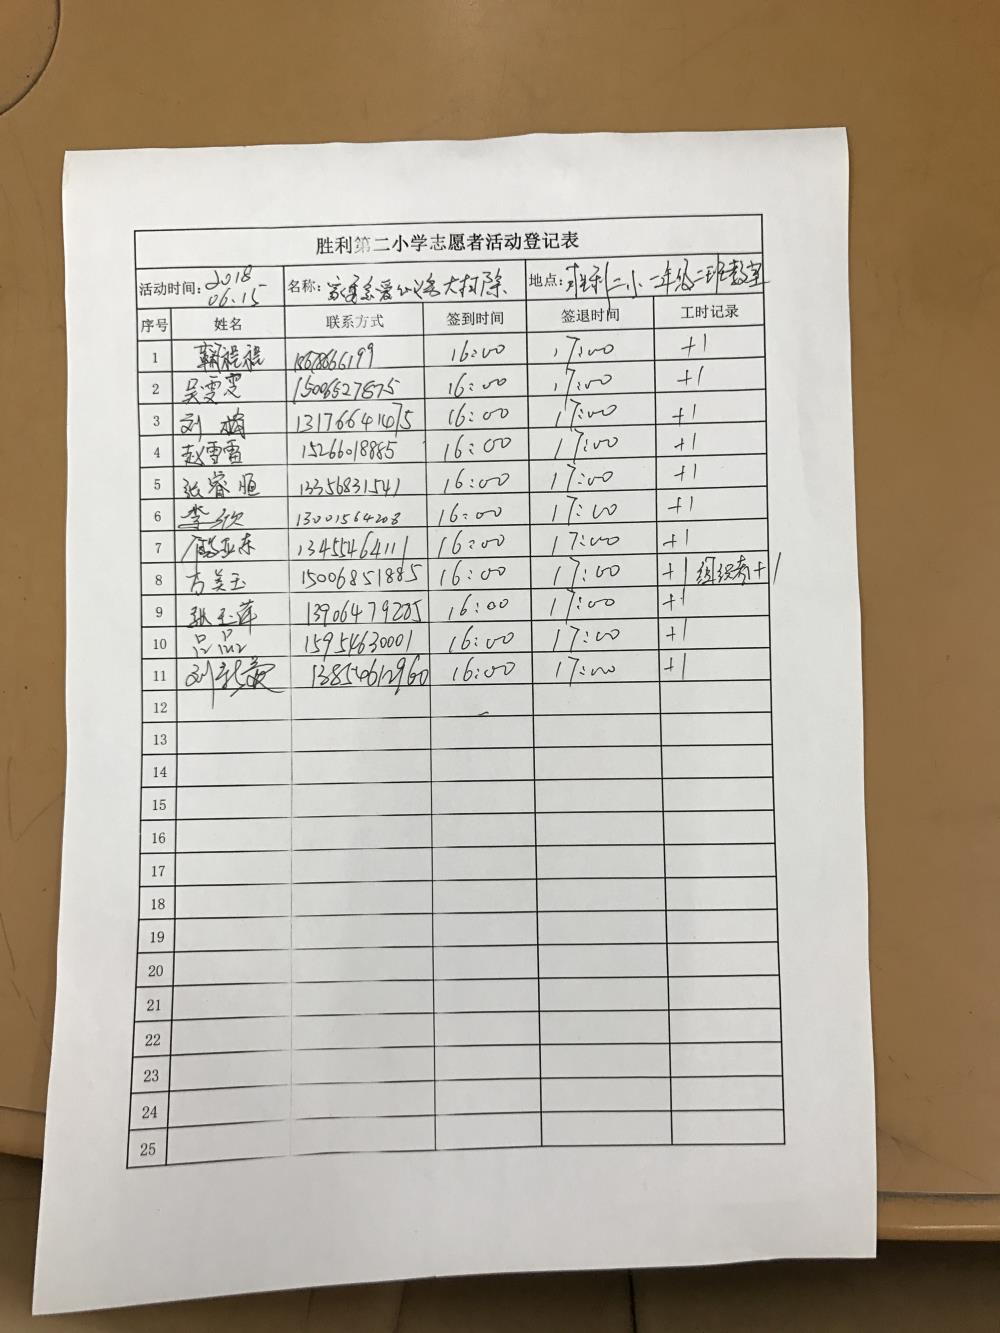 胜利第二小学志愿者活动登记表
活动时间: 2018 06.15 名称: 家委亲爱公义务大扫除 地点: 胜利二小二年级二班教室
序号 姓名 联系方式 签到时间 签退时间 工时记录
1 16:00 17:00 +1
2 吴雯雯 15006527875 16:00 17:00 +1
3 刘 13176641475 16:00 17:00 +1
4 赵雪雷 15266018885 16:00 17:00 +1
5 张睿恒 13356831541 16:00 17:00 +1
6 李欣 13001564208 16:00 17:00 +1
7 亚东 13455464111 16:00 17:00 +1
8 方美玉 15006851885 16:00 17:00 +1 组织者+1
9 张玉萍 13906479205 16:00 17:00 +1
10 吕品 15954630001 16:00 17:00 +1
11 刘 13854612960 16:00 17:00 +1
12
13
14
15
16
17
18
19
20
21
22
23
24
25